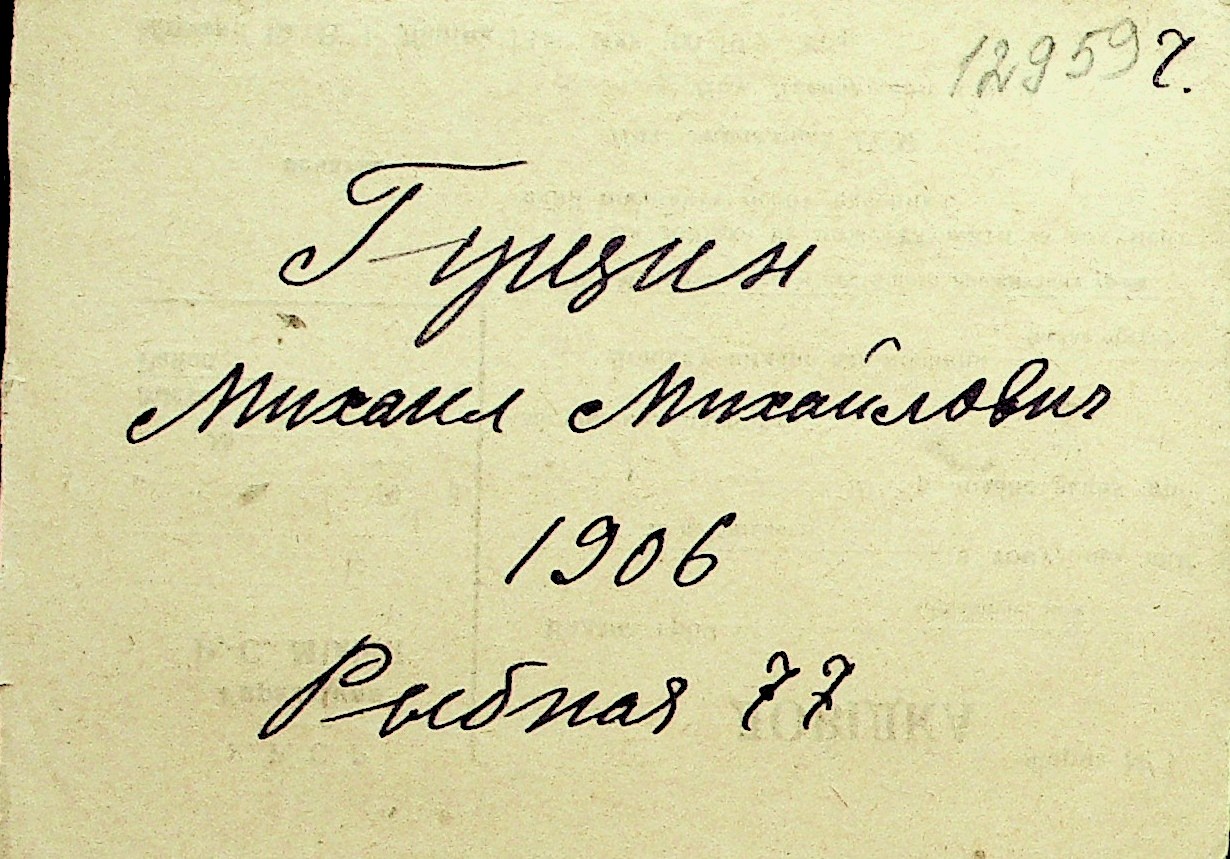 12959 г.
Гущин
Михаил Михайлович
1906
Рыбная 77